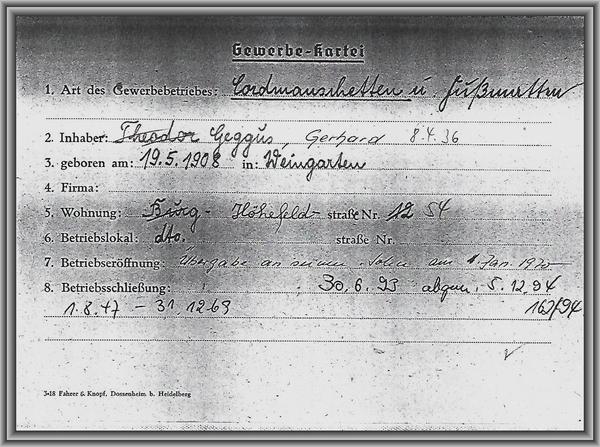 Gewerbe-Kartei
1. Art des Gewerbebetriebes: Cordmanschetten u. Fußmatten
2. Inhaber: Theodor Geggus, Gerhard 8.4.36
3. geboren am: 19.5.1908 in: Weingarten
4. Firma:
5. Wohnung: Burg- Höhefeld- straße Nr. 12 54
6. Betriebslokal: dto. straße Nr.
7. Betriebseröffnung: Übergabe an seinen Sohn am 1. Jan. 1970
8. Betriebsschließung: 30.6.93 abgem. 5.12.94
1.8.47 - 31.12.69 162/94
3-18 Fahrer & Knopf, Dossenheim b. Heidelberg